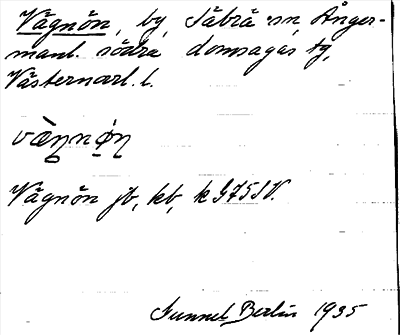 Vågnön, by, Säbrå sn, Ånger-
manl. södra domsagas tg,
Västernorrl. l.
væ̀ŋnø̣ŋ
Vågnön jb, kb, k G75SV.
Gunnel Berlin 1935